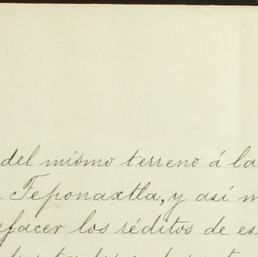 del mismo terreno á la
Teponaxtla, y así m
facer los réditos de es